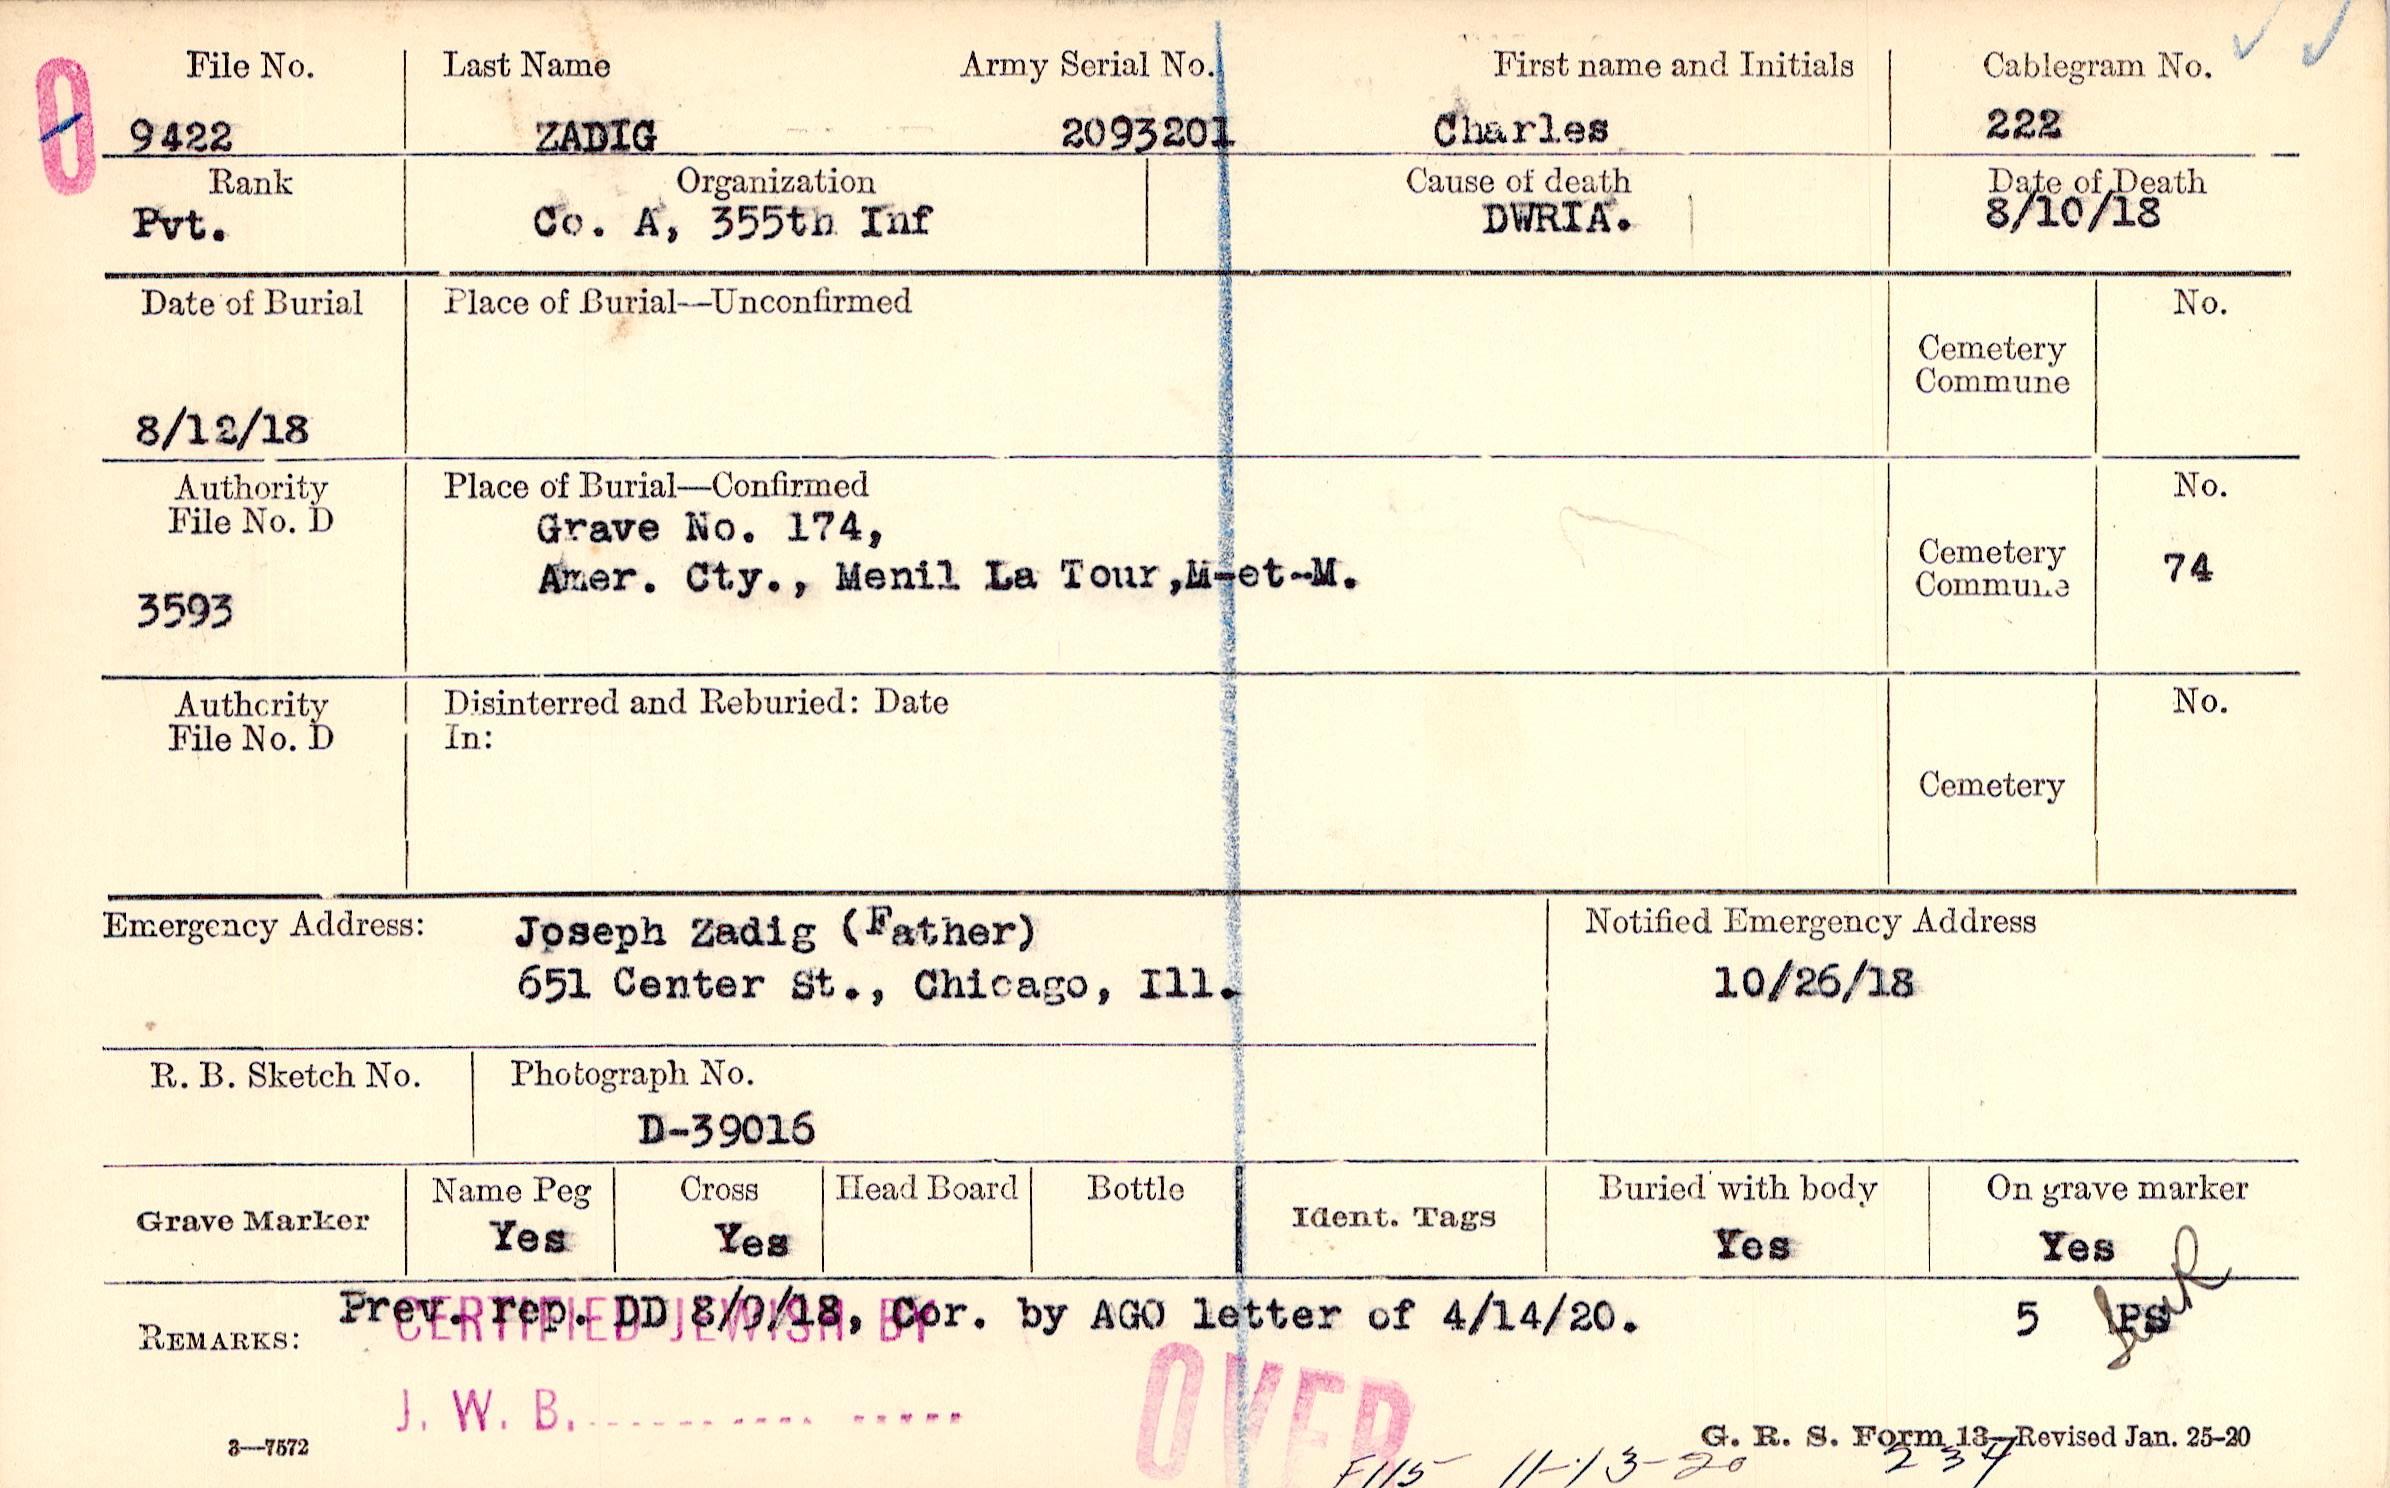 File No. Last Name Army Serial No. First name and Initials Cablegram No.
0 9422 ZADIG 2093201 Charles 222
Rank Organization Cause of death Date of Death
Pvt. Co. A, 355th Inf DWRIA. 8/10/18
Date of Burial Place of Burial—Unconfirmed No.
Cemetery
Commune
8/12/18
Authority Place of Burial—Confirmed No.
File No. D Grave No. 174,
Amer. Cty., Menil La Tour,M-et-M. Cemetery 74
Commune
3593
Authority Disinterred and Reburied: Date No.
File No. D In:
Cemetery
Emergency Address: Joseph Zadig (Father) Notified Emergency Address
651 Center St., Chicago, Ill. 10/26/18
R. B. Sketch No. Photograph No.
D-39016
Name Peg Cross Head Board Bottle Buried with body On grave marker
Grave Marker Ident. Tags
Yes Yes Yes Yes
Prev. rep. DD 8/9/18, Cor. by AGO letter of 4/14/20. 5 PS
CERTIFIED JEWISH BY
REMARKS:
J. W. B. OVER
3—7572 G. R. S. Form 13—Revised Jan. 25-20
F115 11-13-20 237